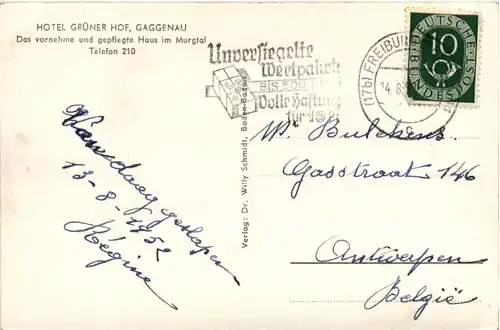 HOTEL GRÜNER HOF, GAGGENAU
Das vornehme und gepflegte Haus im Murgtal
Telefon 210
Vandaag geslapen
13-8-1952
Régine
Verlag: Dr. Willy Schmidt, Baden-Baden
Unversiegelte
Wertpakete
BIS 500
Volle Haftung
für
(17b) FREIBU
14.8
DEUTSCHE BUNDESPOST
10
Mr Bulckens
Gasstraat 146
Antwerpen
België